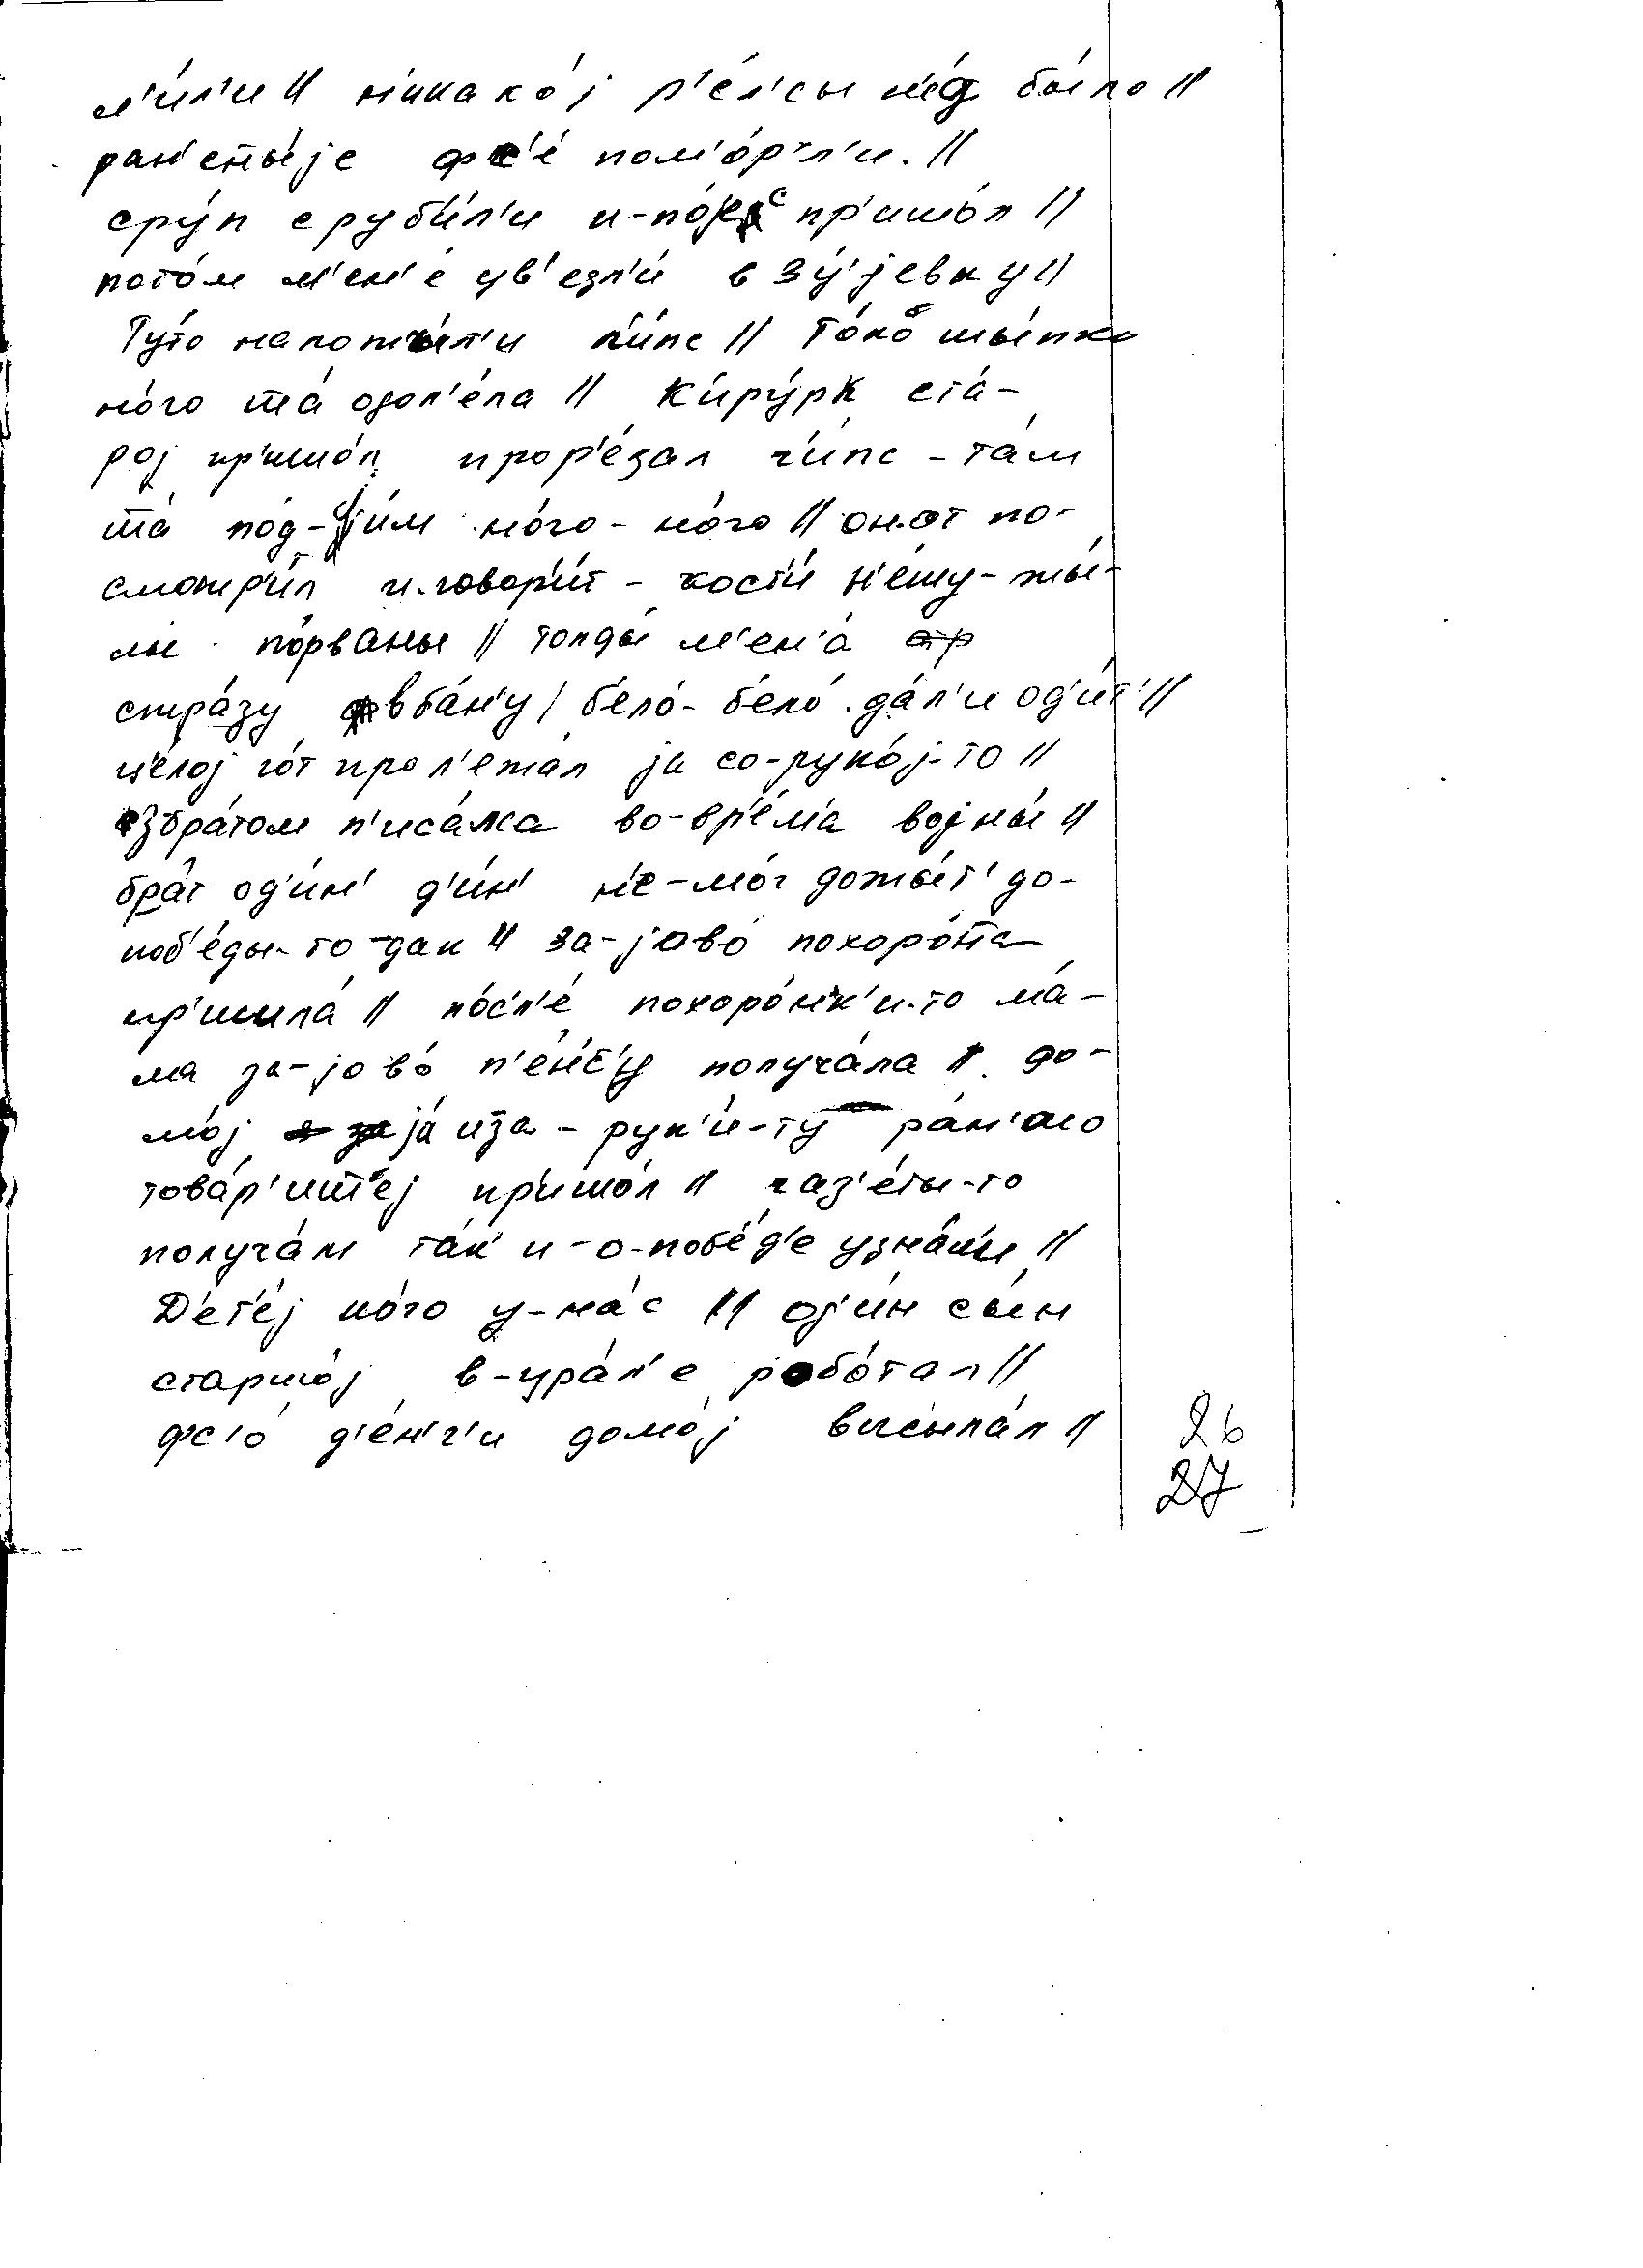 л'и́л'и // н'икако́ј р'е́л'сы н'е́ бы́ло //
ран'еты́је фс'е́ пом'о́рл'и. //
сру́п срубӥ́л'и и-по́јес пр'ишо́л //
пото́м м'ен'е́ ув'езл'и́ в Зу́јевку //
Ту́то наложы́л'и г'и́пс // То́ко шы́пко
но́го та́ одол'е́ла // К'иру́рк ста́-
рој пр'ишо́л прор'е́зал г'и́пс - та́м
та́ по́д-јӥм но́го-но́го // он.от по-
смотр'и́л и.говор'и́т - кост'и́ н'е́ту-жы́-
лы по́рваны // толды́ м'ен'а́
стра́зу вба́н'у / б'ело́-б'ело́ да́л'и од'и́т' //
це́лој го́т прол'ежа́л ја со-руко́ј-то //
збра́том п'иса́лса во-вр'е́м'а војны́ //
бра́т од'и́н' д'и́н' н'е-мо́г дожы́т' до-
поб'е́ды-то дак // за-јово́ похоро́нка
пр'ишла́ // по́сл'е́ похоро́нк'и-то ма́-
ма за-јово́ п'е́нс'ију получа́ла // до-
мо́ј ја́ иза-рук'и́-ту ра́н'шо
това́р'ишш'еј пр'ишо́л // газ'е́ты-то
получа́м та́к и-о-поб'е́д'е узна́л'и //
Д'ет'е́ј но́го у-на́с // од'и́н сы́н
старшо́ј в-ура́л'е робо́тал //
фс'о́ д'е́н'г'и домо́ј высыла́л //
26
27